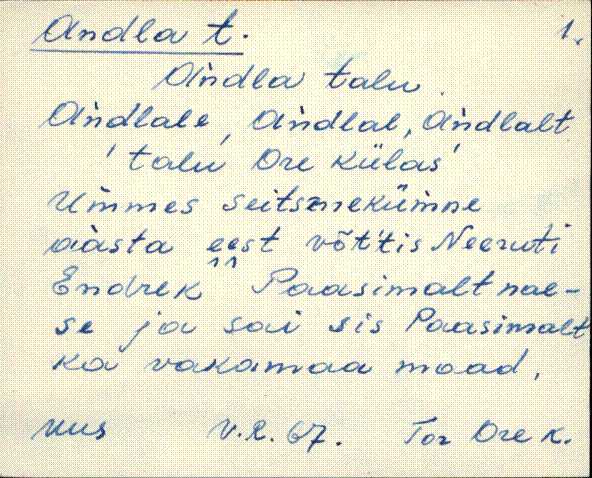 Andla t. 1.
Andla talu.
Andlale, Andlal, Andlalt
'talu Ore külas'
Ummes seitsmekümne
aasta eest võt'tis Neeruti
Endrek Paasimalt nae-
se ja sai sis Paasimalt
ka vakamaa maad.
uus V.R. 67. Tor Ore k.